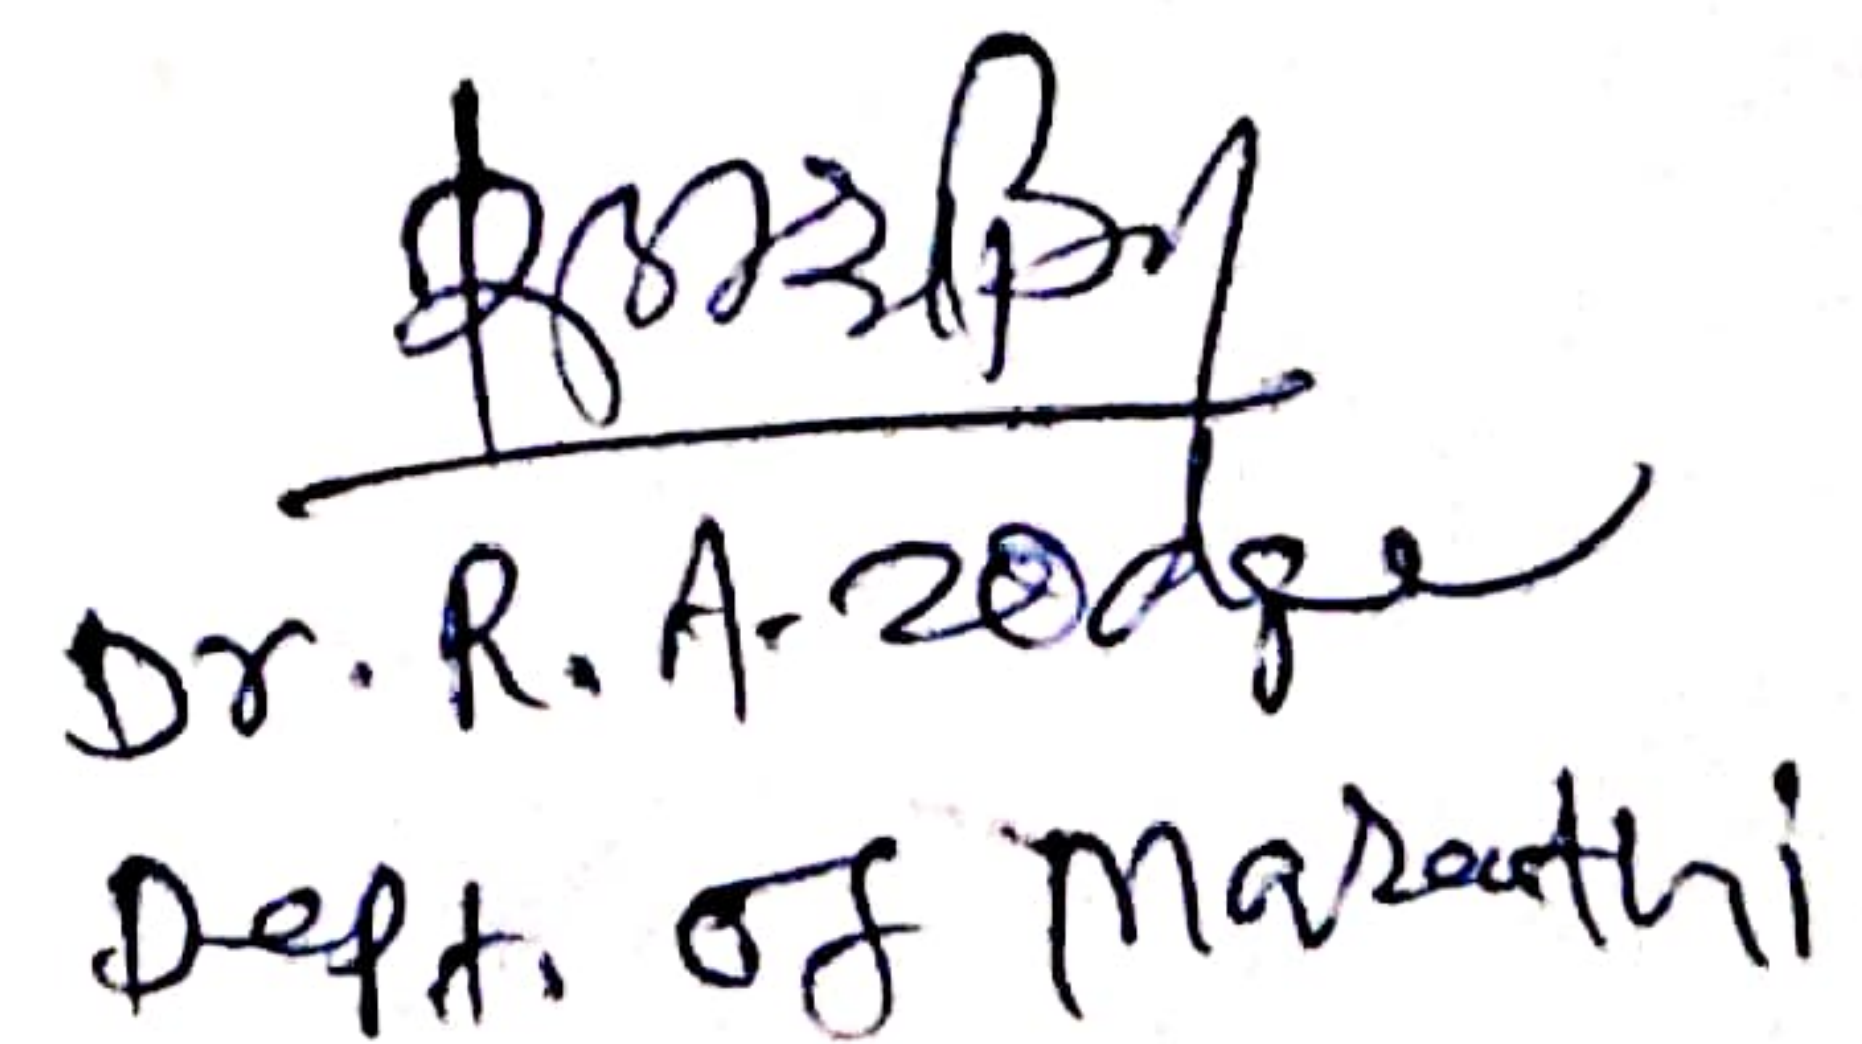 Dr. R. A. Zodge
Dept. of Marathi